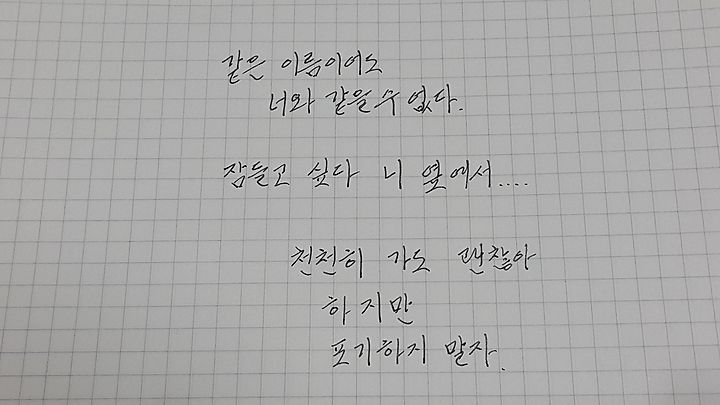 같은 이름이어도
너와 같을 수 없다.
잠들고 싶다 니 옆에서....
천천히 가도 괜찮아
하지만
포기하지 말자.